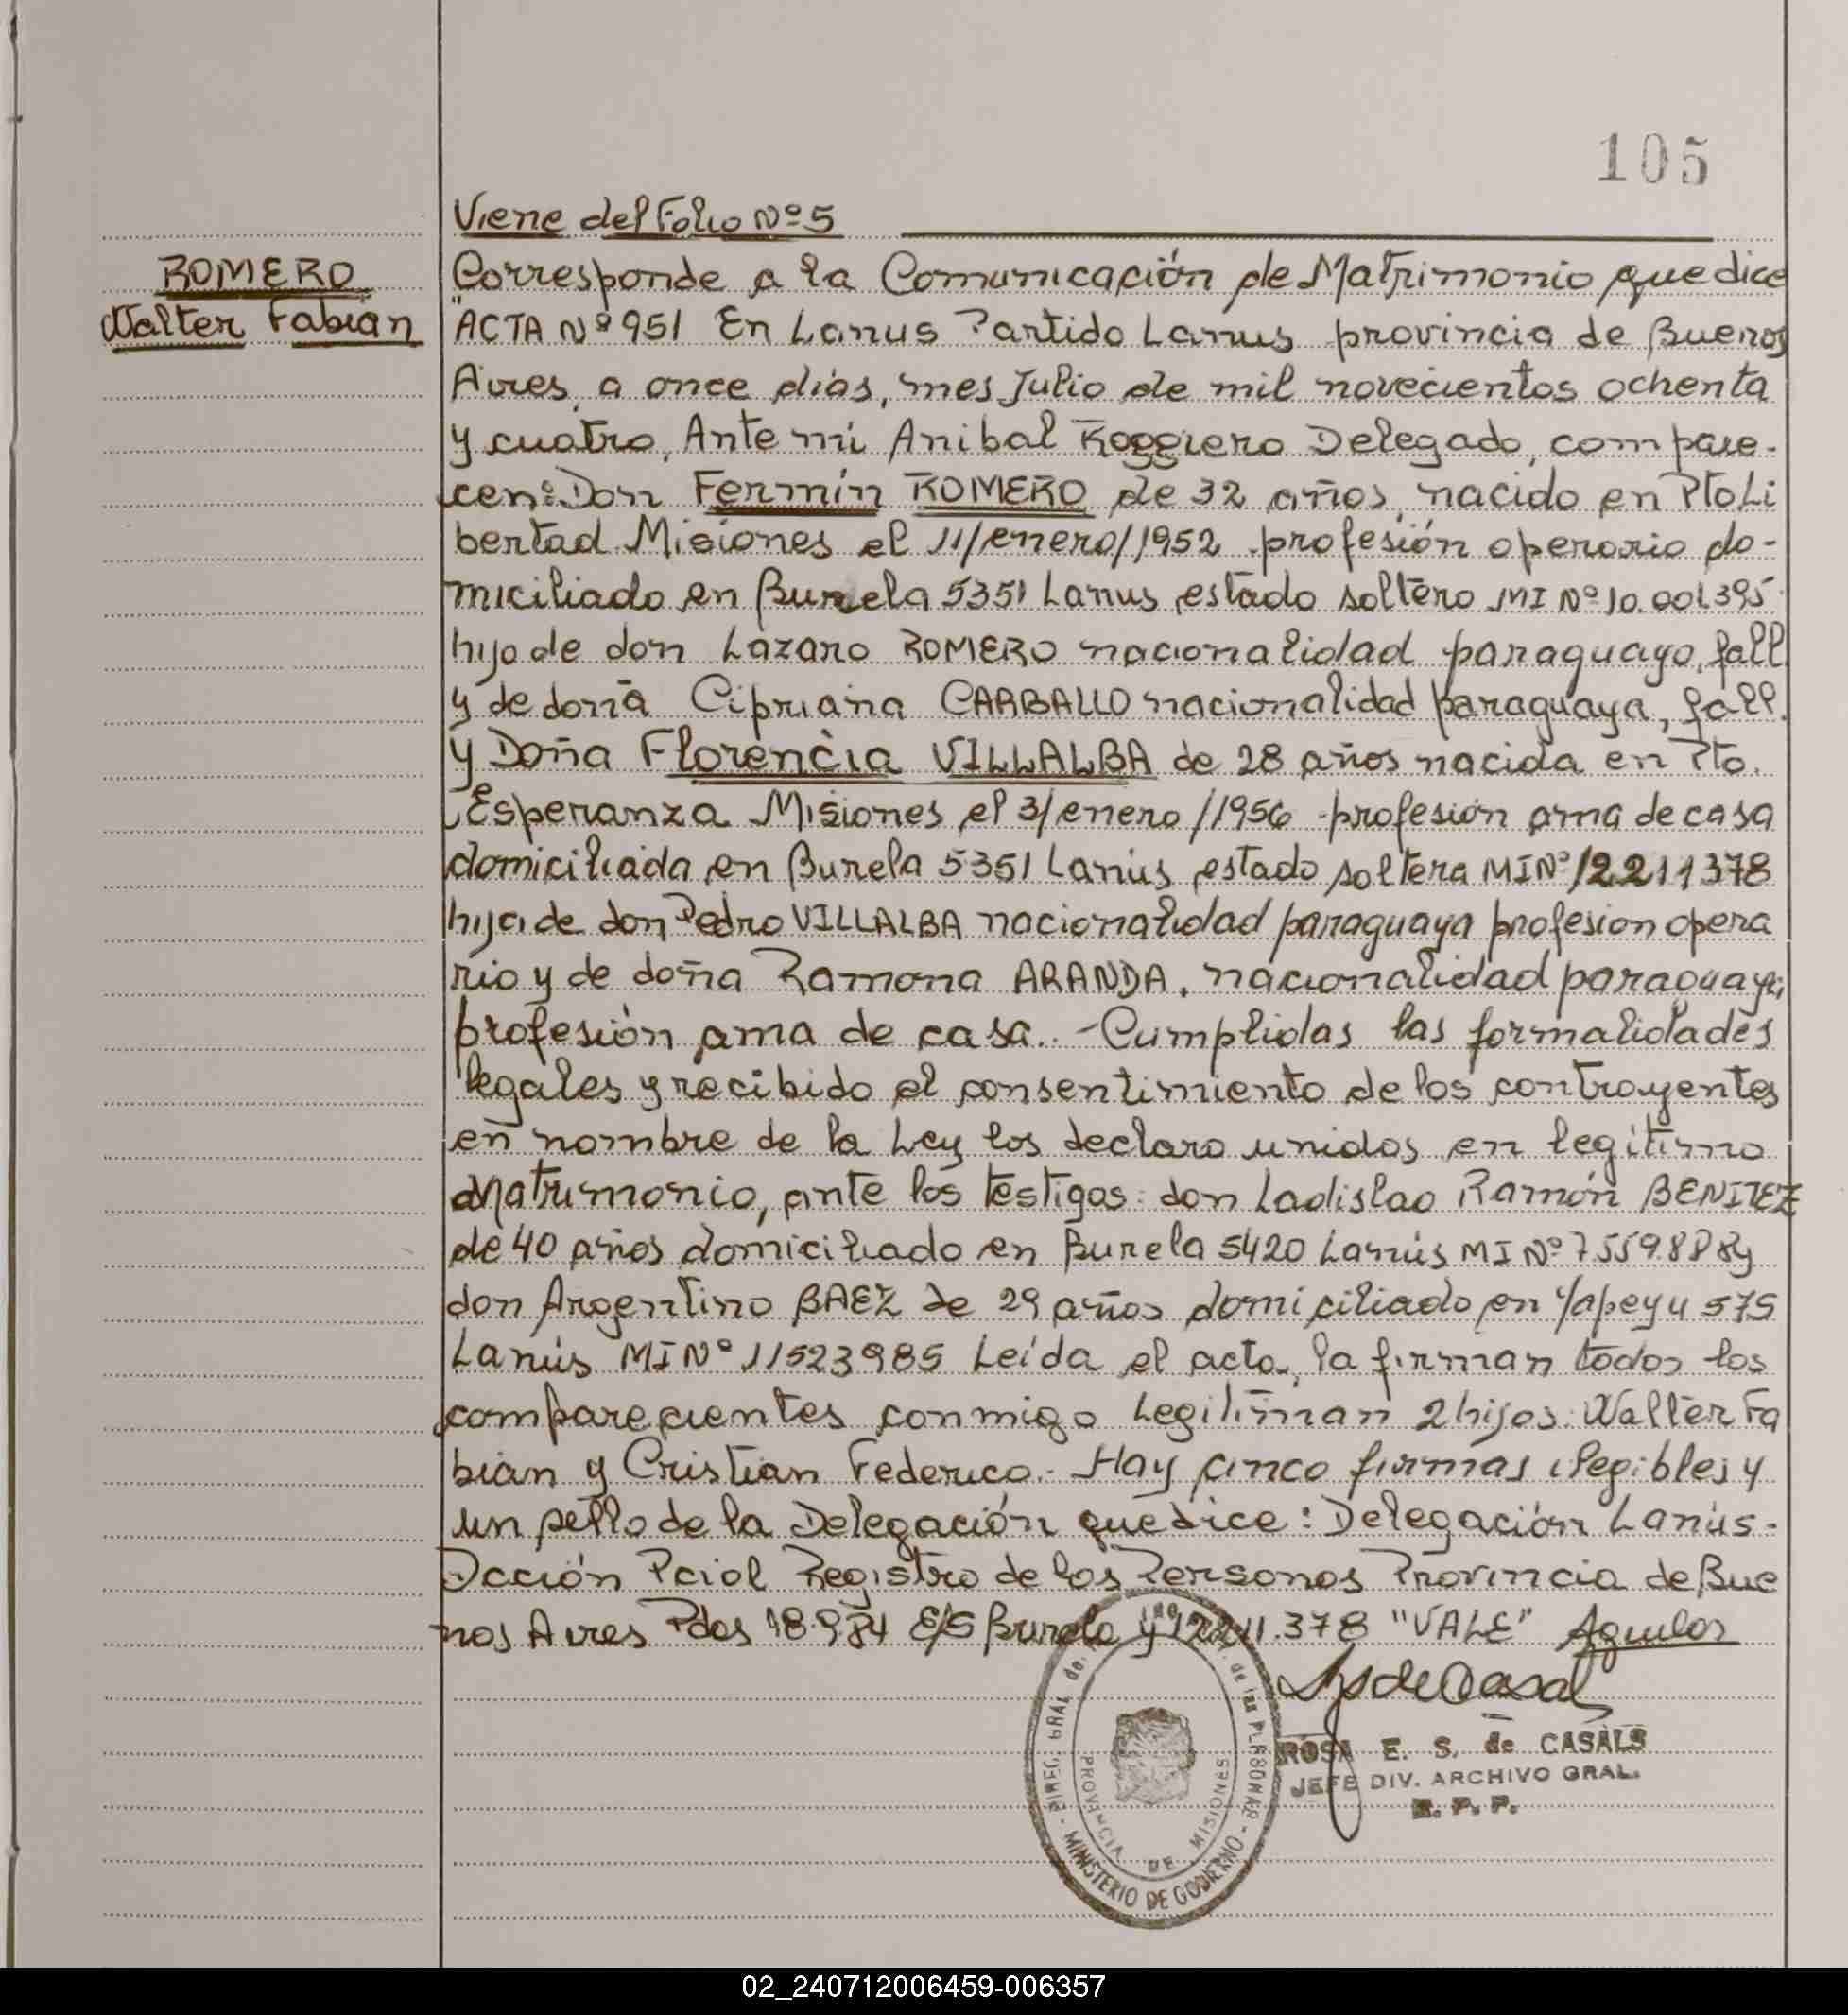 105
Viene del Folio Nº 5
ROMERO
Walter Fabian
Corresponde a la Comunicación de Matrimonio que dice
"ACTA Nº 951 En Lanus Partido Lanus provincia de Buenos
Aires, a once dias, mes Julio de mil novecientos ochenta
y cuatro, Ante mi Anibal Roggiero Delegado, compare-
cen: Don Fermín ROMERO de 32 años, nacido en Pto Li
bertad Misiones el 11/enero/1952 profesión operario do-
miciliado en Burela 5351 Lanus estado soltero MI Nº 10.001.395
hijo de don Lazaro ROMERO nacionalidad paraguayo, fall
y de doña Cipriana CARBALLO nacionalidad paraguaya, fall.
y Doña Florencia VILLALBA de 28 años nacida en Pto.
Esperanza Misiones el 3/enero/1956 profesión ama de casa
domiciliada en Burela 5351 Lanús estado soltera MI Nº 12211378
hija de don Pedro VILLALBA nacionalidad paraguaya profesion opera
rio y de doña Ramona ARANDA, nacionalidad paraguaya
profesión ama de casa.. -Cumplidas las formalidades
legales y recibido el consentimiento de los contrayentes
en nombre de la Ley los declaro unidos en legítimo
Matrimonio, ante los testigos: don Ladislao Ramón BENITEZ
de 40 años domiciliado en Burela 5420 Lanús MI Nº 7.559.888 y
don Argentino BAEZ de 29 años domiciliado en Yapeyu 575
Lanús MI Nº 11523985 Leída el acta, la firman todos los
comparecientes conmigo Legitiman 2 hijos: Walter Fa
bian y Cristian Federico.- Hay cinco firmas ilegibles y
un sello de la Delegación que dice: Delegación Lanús-
Dcción Pcial Registro de las Personas Provincia de Bue
nos Aires Pdas 18.9.84 E/S Burela y 12211.378 "VALE" Aguilar
ROSA E. S. de CASALS
JEFE DIV. ARCHIVO GRAL.
R. P. P.
DIREC. GRAL de las PERSONAS
PROVINCIA DE MISIONES
- MINISTERIO DE GOBIERNO -
02_240712006459-006357